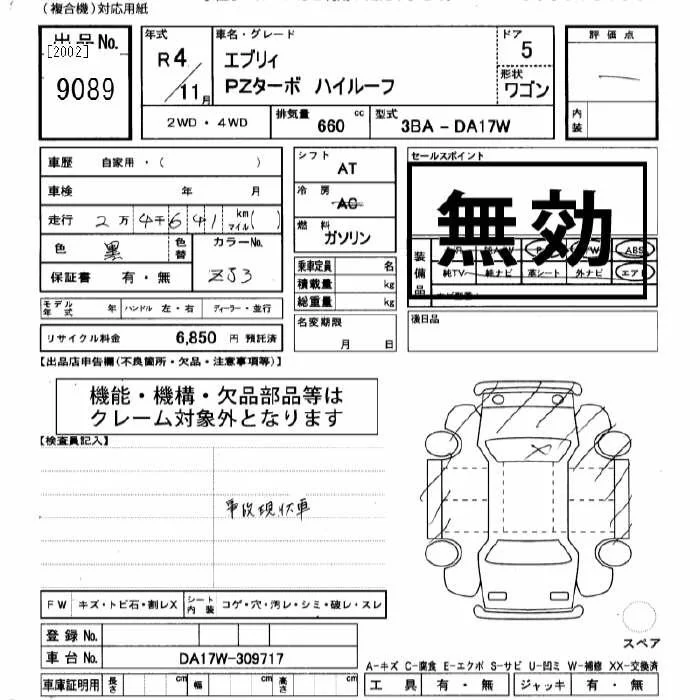 (複合機)対応用紙
出品No.
[2002]
9089
年式
R4/11月
車名・グレード
エブリィ
PZターボ ハイルーフ
ドア
5
形状
ワゴン
評価点
内装
2WD・4WD
排気量 660 cc
型式 3BA-DA17W
車歴 自家用・( )
車検 年 月
走行 2万4千641 km マイル( )
色 黒 色替 カラーNo. ZJ3
保証書 有・無
モデル年式 年 ハンドル 左・右 ディーラー・並行
リサイクル料金 6,850 円 預託済
シフト AT
冷房 AC
燃料 ガソリン
乗車定員 名
積載量 kg
総重量 kg
名変期限
月 日
セールスポイント
無効
装備品
ABS
純TV 純ナビ 革シート 外ナビ エアB
後日品
【出品店申告欄(不良箇所・欠品・注意事項等)】
機能・機構・欠品部品等は
クレーム対象外となります
【検査員記入】
事故現状車
FW キズ・トビ石・割レX シート内装 コゲ・穴・汚レ・シミ・破レ・スレ
登録No.
車台No. DA17W-309717
車庫証明用 長さ cm 幅 cm 高さ cm
スペア
A-キズ C-腐食 E-エクボ S-サビ U-凹ミ W-補修 XX-交換済
工具 有・無 ジャッキ 有・無